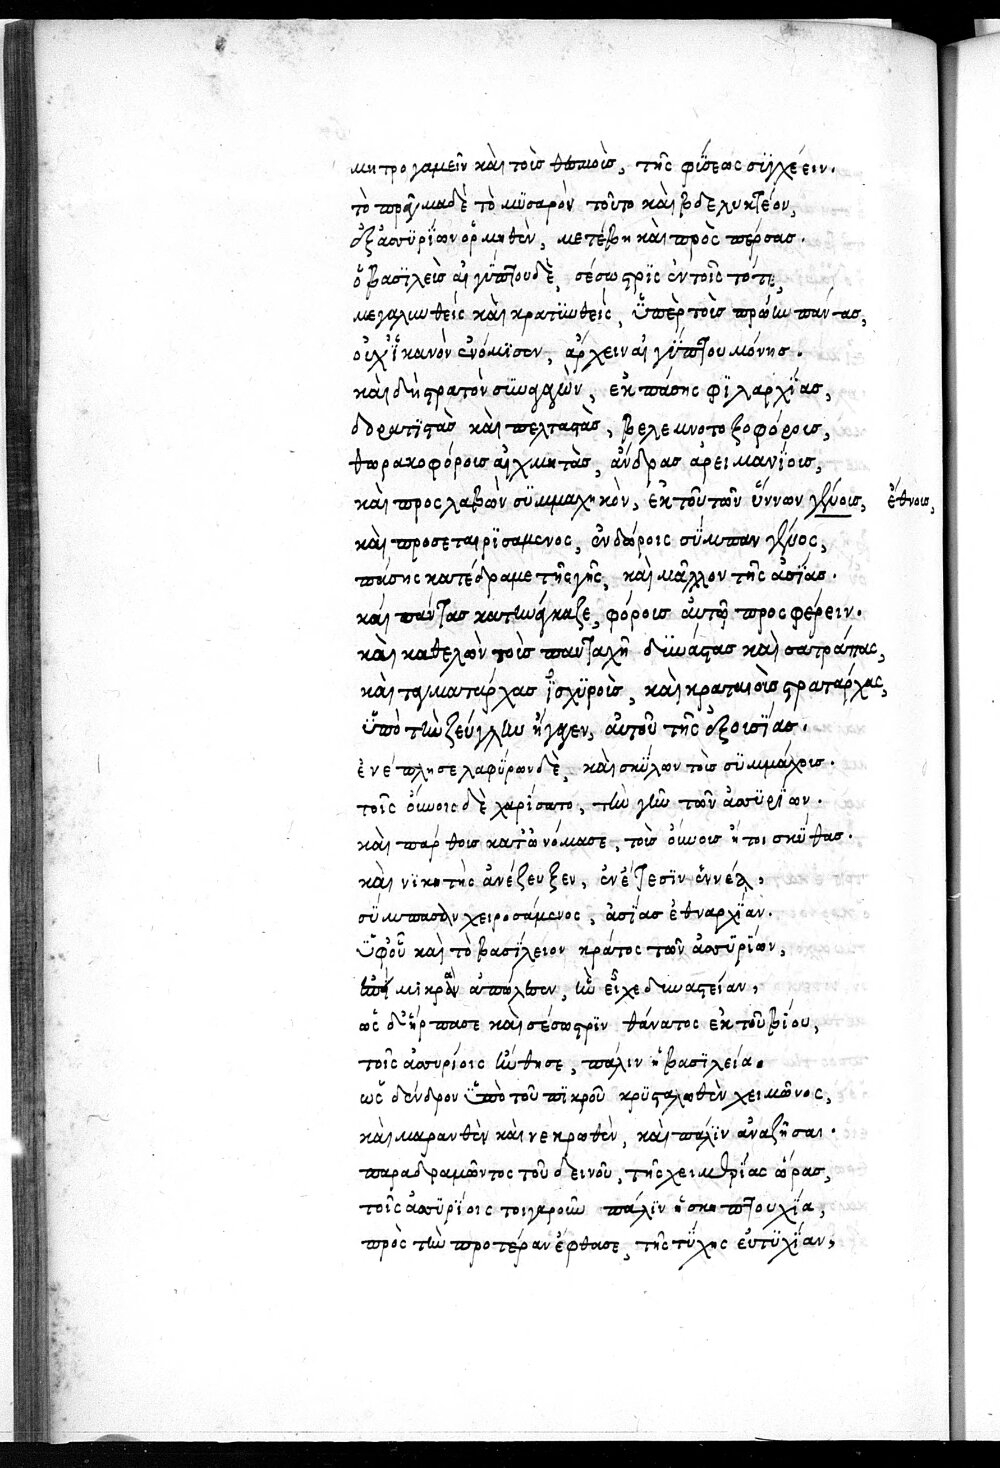 μητρογαμεῖν καὶ τοῖσ θεσμοῖσ, τῆς φΰσεως σϊγχέειν.
τὸ πρᾶγμα δὲ τὸ μϋσαρὸν τοῦτο καὶ βδελυκτέον,
ἐξ ἀσσϋρΐων ὁρμηθὲν, μετέβη καὶ πρὸς πέρσασ.
ὁ βασϊλεὺσ αἰγΰπτου δὲ, σέσωστρϊς ἐν τοῖς τότε,
μεγαλυνθεὶς καὶ κρατϋνθεὶς, ὑπὲρ τοὺσ πρώην πάντασ,
οὐχ ἱκανὸν ἐνόμϊσεν, ἄρχειν αἰγΰπτου μόνησ.
καὶ δὴ στρατὸν σϋναθρῶν, ἐκ πάσης φϊλαρχΐασ,
δορατιστὰσ καὶ πελταστὰσ, βελεμνοτοξοφόροισ,
θωρακοφόροισ αἰχμητὰσ, ἄνδρασ ἀρειμανΐοισ,
καὶ προσλαβὼν σϋμμαχϊκὸν, ἐκ τοῦ τῶν οὕννων γένοισ, ἔθνοισ,
καὶ προσεταιρϊσάμενος, ἐν δώροις σΰμπαν γένος,
πάσης κατέδραμε τῆς γῆς, καὶ μᾶλλον τῆς ἀσΐασ.
καὶ πάντασ κατηνάγκαζε, φόροισ αὐτῷ προσφέρειν.
καὶ καθελὼν τοὺσ πανταχῆ δϋνάστασ καὶ σατράπας,
καὶ ταγματάρχασ ἰσχϋροὺσ, καὶ κραταιοὺσ στρατάρχας,
ὑπὸ τὴν ζεύγλην ἤγαγεν, αὐτοῦ τῆς ἐξοισΐασ.
ἐνέπλησε λαφΰρων δὲ, καὶ σκΰλων τοὺσ σϋμμάχοισ.
τοῖς οὕννοις δὲ χαρίσατο, τὴν γῆν τῶν ἀσσϋρΐων.
καὶ πάρθοισ κατὠνόμασε, τοὺσ οὕννοισ ἤτοι σκΰθασ.
καὶ νϊκητὴς ἀνέζευξεν, ἐν ἔτεσϊν ἐννέα,
σΰμπασαν χειροσάμενος, ἀσΐασ ἐθναρχΐαν.
ὑφ' οὗ καὶ τὸ βασΐλειον κράτος τῶν ἀσσϋρΐων,
μικρὸν ἀπώλεσεν, ἣν εἶχε δϋναστείαν,
ὡς δ' ἥρπασε καὶ σέσωστρϊν θάνατος ἐκ τοῦ βΐου,
τοῖς ἀσσυρίοις ηὔθησε, πάλιν ἡ βασϊλεία.
ὡς δένδρον ὑπὸ τοῦ πϊκροῦ κρϋσταλωθὲν χειμῶνος,
καὶ μαρανθὲν καὶ νεκρωθὲν, καὶ πάλϊν ἀναζῆσαι.
παραδραμῶντος τοῦ δεινοῦ, τῆς χειμερΐας ὥρασ,
τοῖς ἀσσϋρΐοις τοιγαροῦν πάλϊν ἡ σκηπτουχΐα,
πρὸς τὴν προτέραν ἔφθασε, τῆς τΰχης εὐτϋχΐαν,